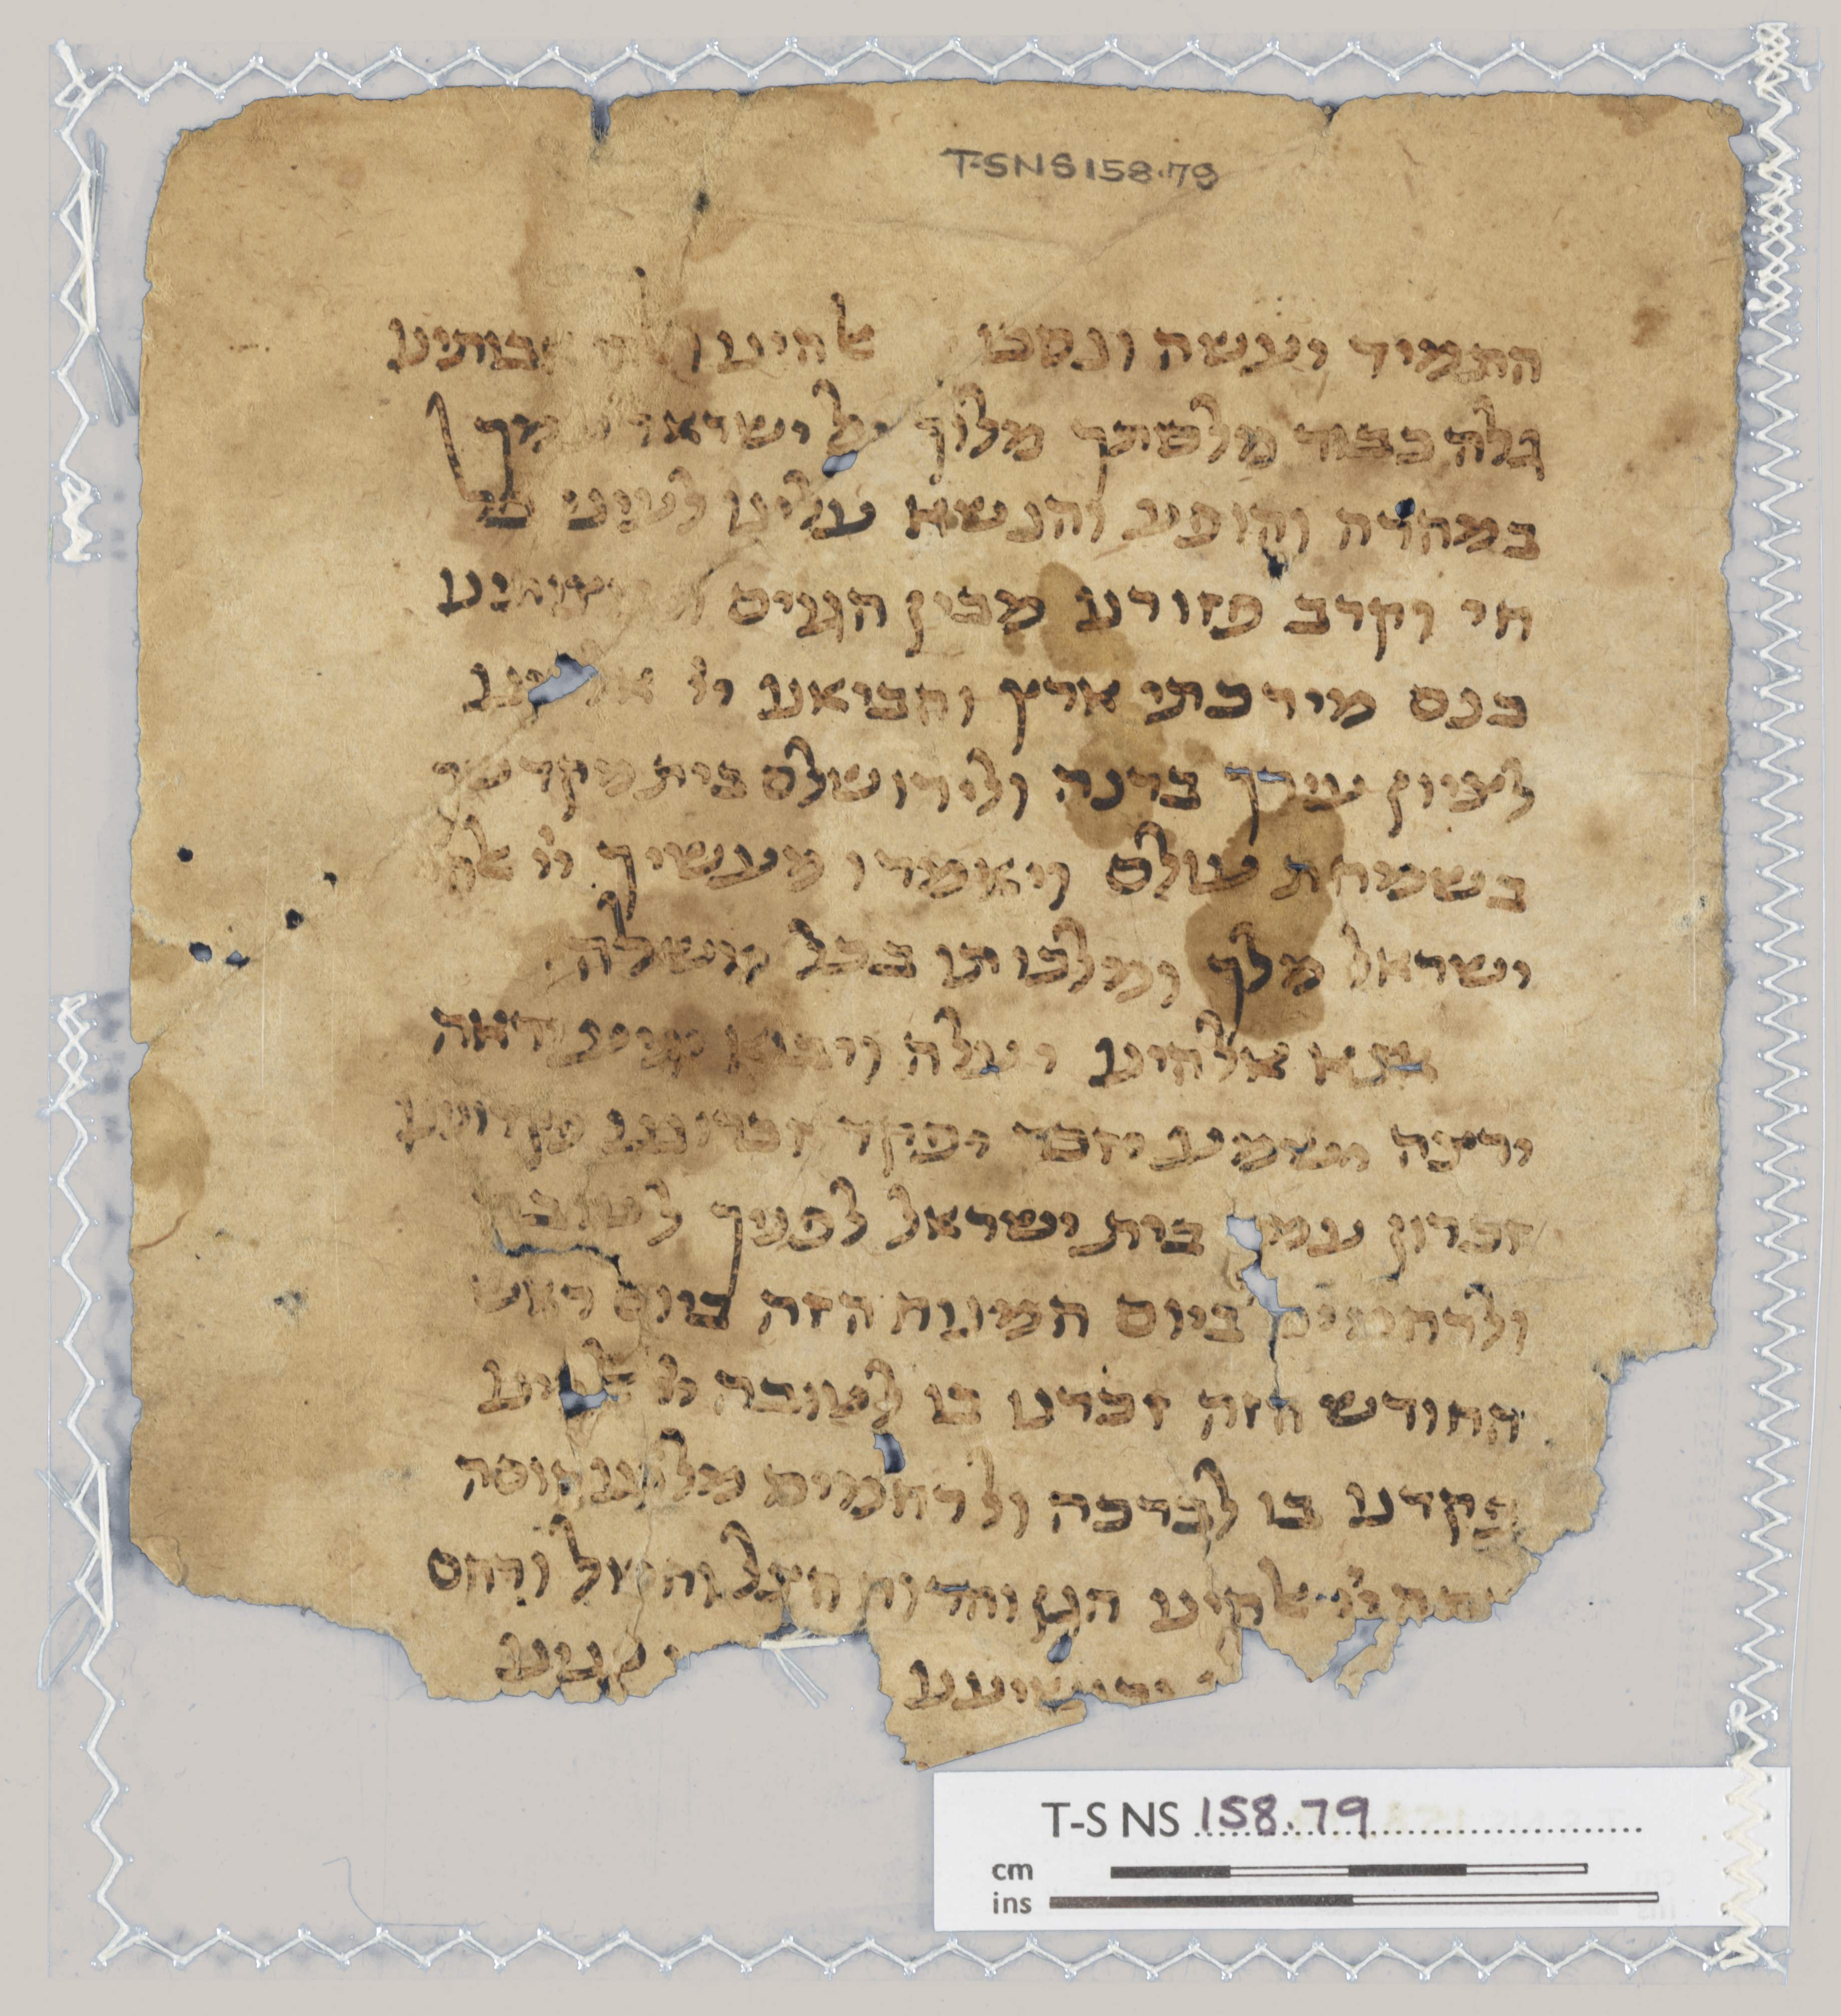 T-S NS 158.79
התמיד יעשה ונסכו אלהינו ואלהי אבותינו
גלה כבוד מלכותך מלוך על ישראל עמך
במהרה והופיע והנשא עלינו לעיני כל
חי וקרב פזורנו מבין הגוים
כנס מירכתי ארץ והביאנו ייי אלהינו
לציון עירך ברנה ולירושלם בית מקדשך
בשמחת עולם ויאמרו מעשיך ייי אלהי
ישראל מלך ומלכותו בכל משלה
אנא אלהינו יעלה ויבוא יגיע יראה
ירצה ישמע יזכר יפקד זכרוננו פקדוננו
זכרון עמך בית ישראל לפניך לטובה
ולרחמים ביום המנוח הזה ביום ראש
החודש הזה זכרנו בו לטובה ייי אלהינו
פקדנו בו לברכה ולרחמים מלכנו חוסה
אלהינו חנון ורחום חמול ורחם
והושיענו
T-S NS 158.79
cm
ins